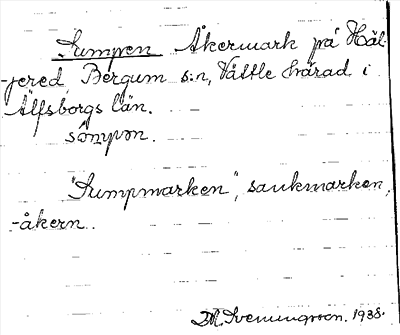 Sumpen Åkermark på Häl-
-jered, Bergum s:n, Vättle härad i
Älfsborgs län.
sómpən.
"Sumpmarken", sankmarken,
-åkern.
1938.